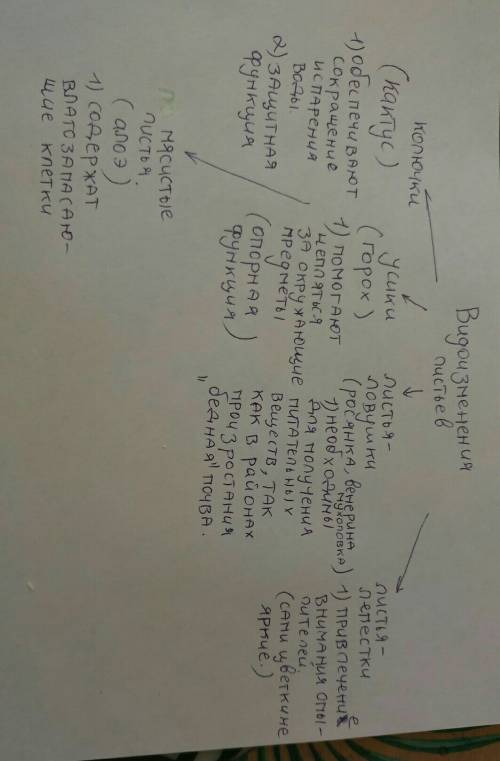 Видоизменения
листьев
колючки
(кактус)
1) обеспечивают
сокращение
испарения
воды.
2) защитная
функция
усики
(горох)
1) помогают
цепляться
за окружающие
предметы
(опорная
функция)
листья-
ловушки
(росянка, венерина
мухоловка)
1) необходимы
для получения
питательных
веществ, так
как в районах
произростания
„бедная" почва.
листья-
лепестки
1) привлечение
внимания опы-
лителей.
(сами цветки не
яркие.)
мясистые
листья.
(алоэ)
1) содержат
влагозапасаю-
щие клетки